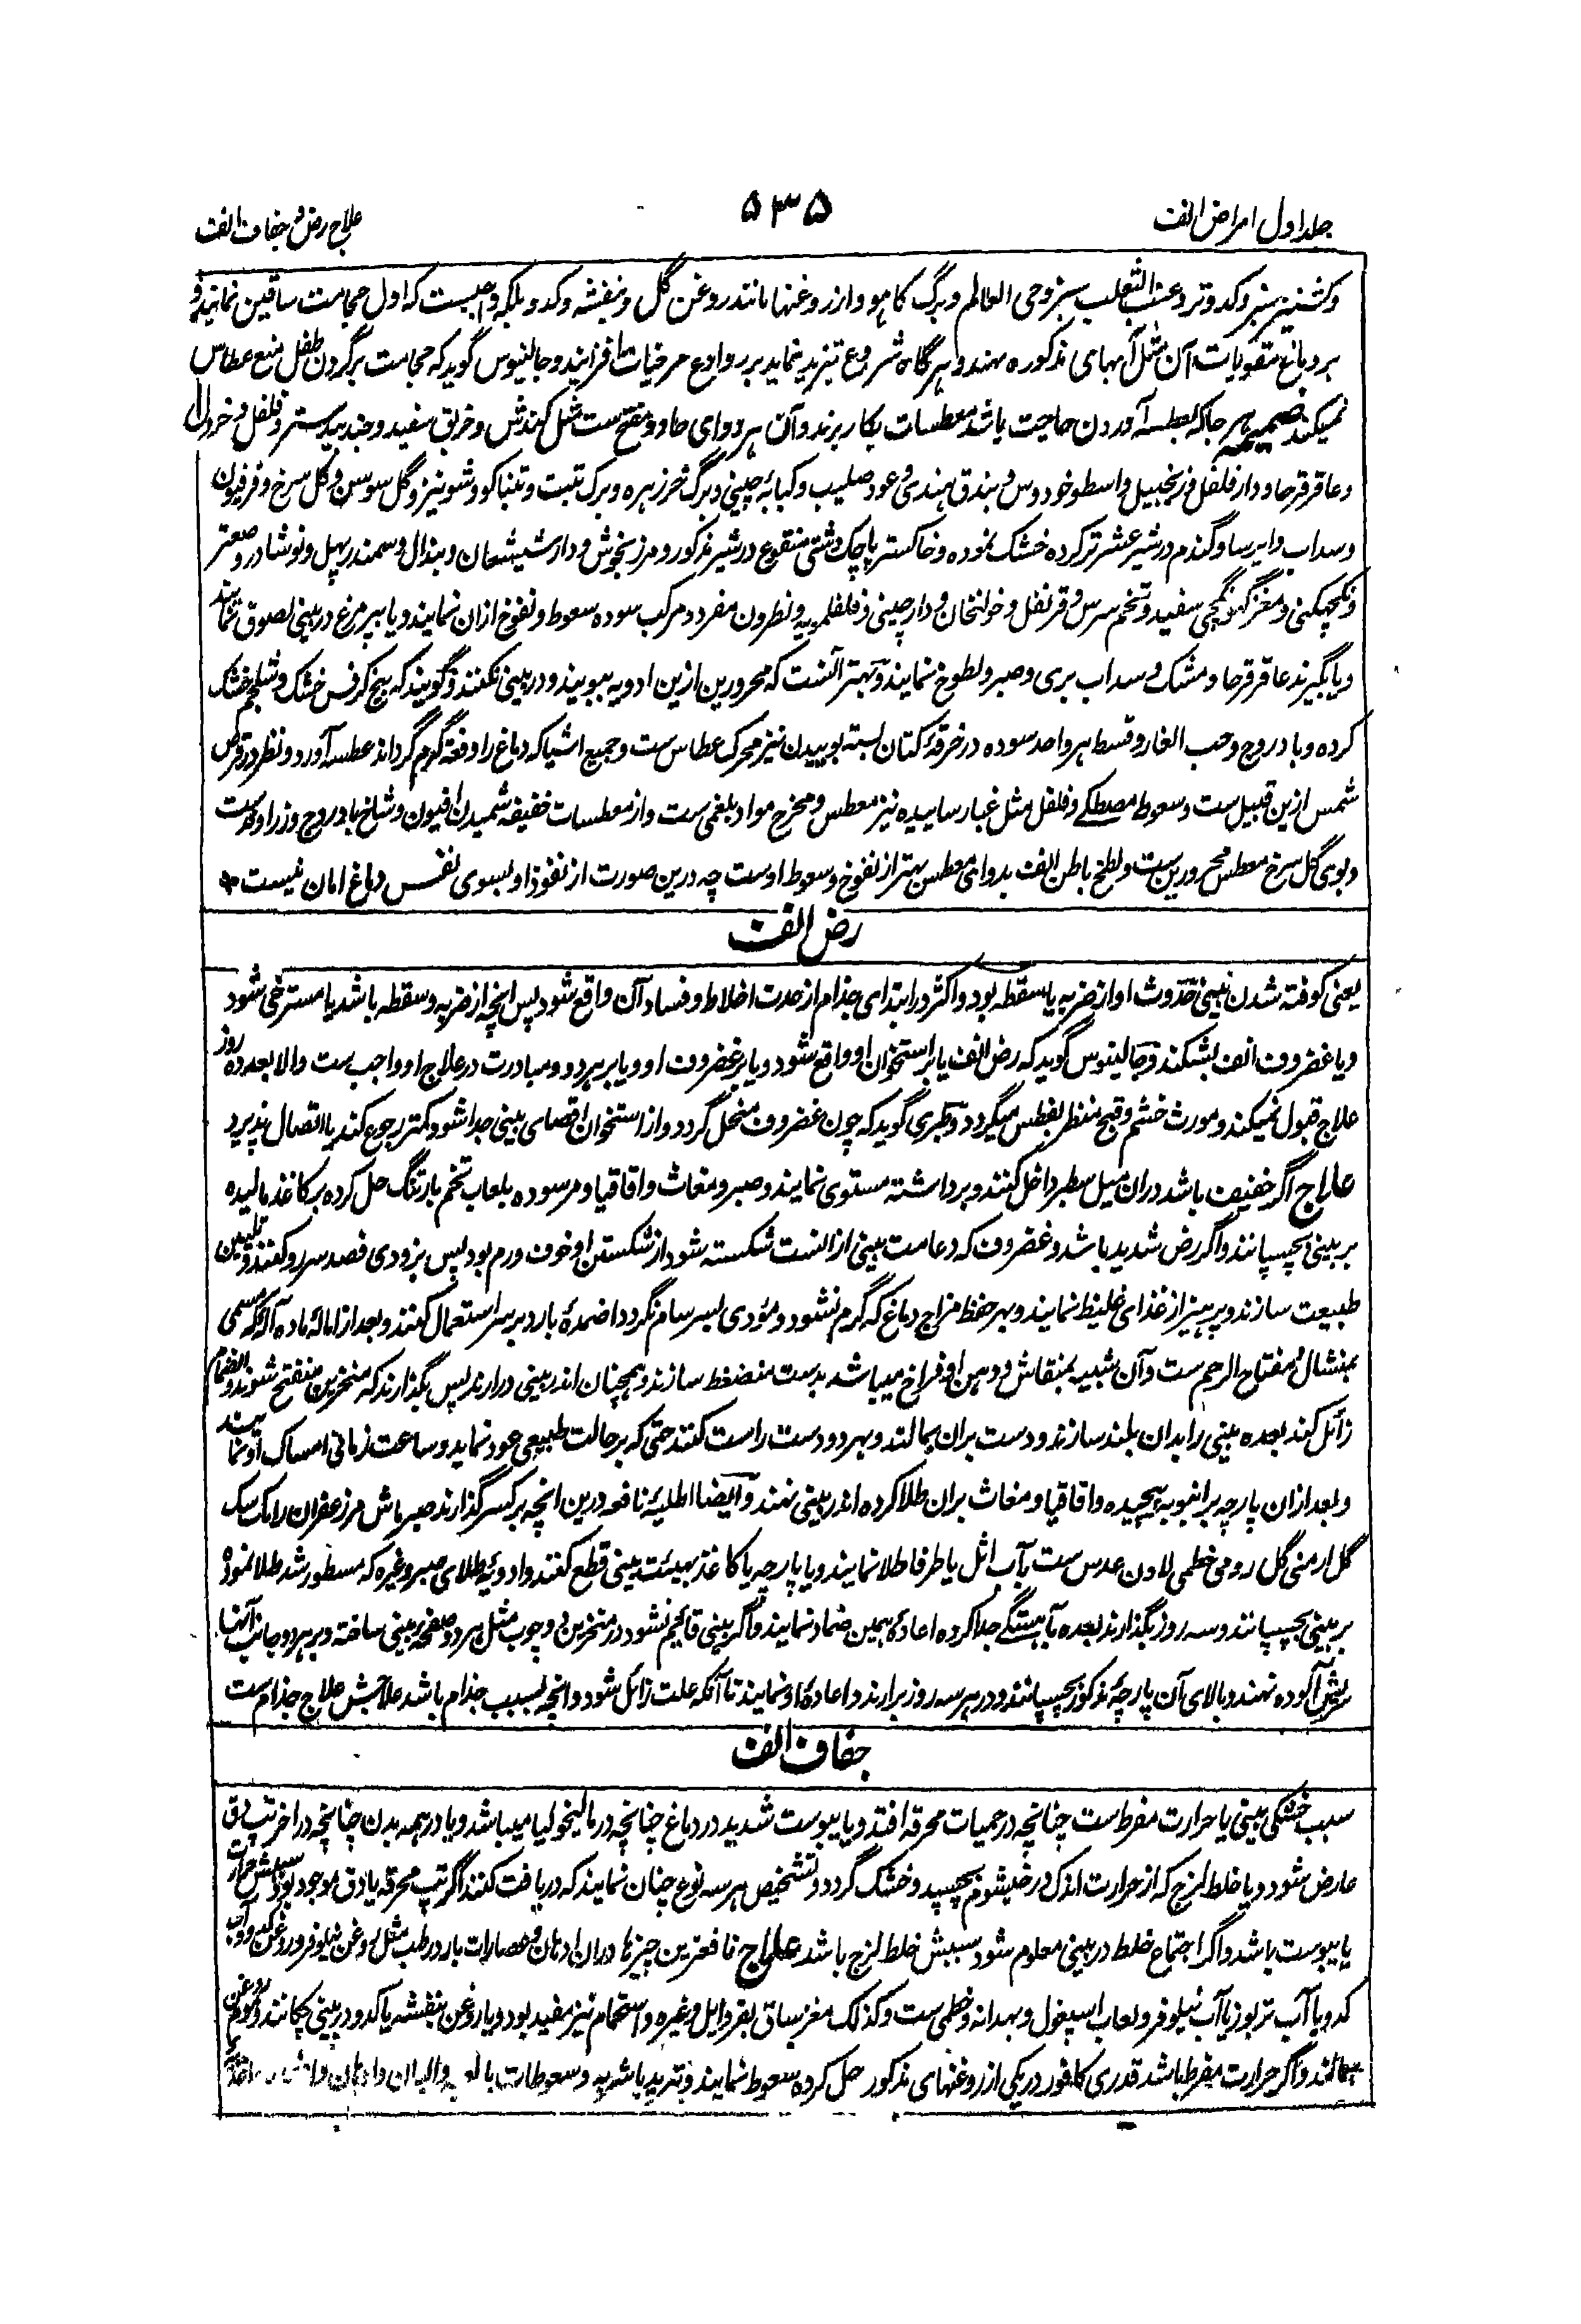 جلد اول امراض انف
۵۳۵
علاج رض و جفاف انف
و کشنیز سبز و کدو تر و عنب الثعلب سبز و حی العالم و برگ کاهو و از روغنها مانند روغن گل و بنفشه و کدو بلکه واجبست که اول حجامت ساقین نمایند و
بر دماغ مقویات آن مثل آبهای مذکوره نهند و هرگاه شروع تبزید نماید بر روادع مرخیات افزایند و جالینوس گوید که حجامت بر گردن طفل منع عطاس
نمیکند ضمیمه هر جا که بعطسه آوردن حاجت باشد معطسات بکار برند و آن هر دوای حاد و مفتح ست مثل کندش و خربق سفید و جندبیدستر و فلفل و خردل
و عاقرقرحا و دارفلفل و زنجبیل و اسطوخودوس و بندق هندی و عود صلیب و کبابه چینی و برگ خرزهره و برگ تبت و تنباکو و شونیز و گل سوسن و گل سرخ و فرفیون
و سداب و ایرسا و گندم در شیر عشر تر کرده خشک نموده و خاکستر پاچک دشتی منقوع در شیر مذکور و مرزنجوش و دارشیشعان و بندال و سمندر پهل و نوشادر و صعتر
و نکچهکنی و مغز گهونگچی سفید و تخم سرس و قرنفل و خولنجان و دارچینی و فلفلمویه و نطرون مفرد و مرکب سوده سعوط و نفوخ ازان نمایند و یا بپر مرغ در بینی لصوق نمایند
و یا بگیرند عاقرقرحا و مشک و سداب بری و صبر و لطوخ نمایند و بهتر آنست که محرورین ازین ادویه ببویند و در بینی نکنند و گویند که بیخ کرفس خشک و شلجم خشک
کرده و بادروج و حب الغار و قسط هر واحد سوده در خرقه کتان بسته بوییدن نیز محرک عطاس ست و جمیع اشیا که دماغ را دفعة گرم گرداند عطسه آورد و نظر در قرص
شمس ازین قبیل ست و سعوط مصطکے و فلفل مثل غبار ساییده نیز معطس و مخرج مواد بلغمی ست و از معطسات خفیفه شمیدن افیون و شاخ بادروج و زراوند ست
و بوی گل سرخ معطس محرورین ست و لطخ باطن انف بدوای معطس بهتر از نفوخ و سعوط اوست چه درین صورت از نفوذ او بسوی نفس دماغ امان نیست
رض انف
یعنی کوفته شدن بینی حدوث او از ضربه یا سقطه بود و اکثر در ابتدای جذام از حدت اخلاط و فساد آن واقع شود پس انچه از ضربه و سقطه باشد یا مسترخی شود
و یا غضروف انف بشکند و جالینوس گوید که رض انف یا بر استخوان او واقع شود و یا بر غضروف او و یا بر هر دو و مبادرت در علاج او واجب ست و الا بعد ده روز
علاج قبول نمیکند و مورث خشم و قبح منظر بفطس میگردد و طبری گوید که چون غضروف منحل گردد و از استخوان اقصای بینی جدا شود کمتر رجوع کند یا اتصال پذیرد
علاج اگر خفیف باشد دران میل سطبر داخل کنند و برداشته مستوی نمایند و صبر و مغاث و اقاقیا و مر سوده بلعاب تخم بارتنگ حل کرده بر کاغذ مالیده
بر بینی بچسپانند و اگر رض شدید باشد و غضروف که دعامت بینی از انست شکسته شود از شکستن او خوف ورم بود پس بزودی فصد سررو کنند و تلیین
طبیعت سازند و پرهیز از غذای غلیظ نمایند و بهر حفظ مزاج دماغ که گرم نشود و مؤدی بسرسام نگردد اضمده بارد بر سر استعمال کنند و بعد از اماله ماده آله که مسمی
بمنشال و مفتاح الرحم ست و آن شبیه بمنقاش و دهن او فراخ میباشد بدست منضغط سازند و همچنان اندر بینی درارند پس بگذارند که منخرین منفتح شوند و انضمام
زائل کند بعده بینی را بدان بلند سازند و دست بران بمالند و بهر دو دست راست کنند حتی که بر حالت طبیعی عود نماید و ساعت زمانی امساک او نمایند
و بعد ازان پارچه بر انبوبه پیچیده و اقاقیا و مغاث بران طلا کرده اندر بینی نهند و ایضا اطلیه نافعه درین انچه بر کسر گذارند صبر ماش مر زعفران رامک سک
گل ارمنی گل رومی خطمی لادن عدس ست بآب اثل یا طرفا طلا نمایند و یا پارچه یا کاغذ بهیئت بینی قطع کنند و ادویه طلای صبر وغیره که مسطور شد طلا نموده
بر بینی بچسپانند و سه روز بگذارند بعده بآهستگی جدا کرده اعاده همین ضماد نمایند و اگر بینی قائم نشود در منخرین دو چوب مثل هر دو صفحه بینی ساخته و بر هر دو جانب آنها
سریش آلوده نهند و بالای آن پارچه مذکور بچسپانند و در هر سه روز برارند و اعاده او نمایند تا آنکه علت زائل شود و انچه بسبب جذام باشد علاجش علاج جذام ست
جفاف انف
سبب خشکی بینی یا حرارت مفرط ست چنانچه در حمیات محرقه افتد و یا یبوست شدید در دماغ چنانچه در مالیخولیا میباشد و یا در همه بدن چنانچه در اخر تپ دق
عارض شود و یا خلط لزج که از حرارت اندک در خیشوم بچسپد و خشک گردد و تشخیص هر سه نوع چنان نمایند که دریافت کنند اگر تپ محرقه یا دق موجود بود سببش حرارت
یا یبوست باشد و اگر اجتماع خلط در بینی معلوم شود سببش خلط لزج باشد علاج نافعترین چیزها دران ادهان و عصارات بارد رطب مثل روغن نیلوفر و روغن
کدو یا آب تربوز یا آب نیلوفر و لعاب اسپغول و بهدانه و خطمی ست و کذلک مغز ساق بقر و ایل وغیره و استحمام نیز مفید بود و یا روغن بنفشه یا کدو در بینی چکانند و
بمالند و اگر حرارت مفرط باشد قدری کافور در یکی از روغنهای مذکور حل کرده سعوط نمایند و تبرید باشربه و سعوطات والبان و ادهان